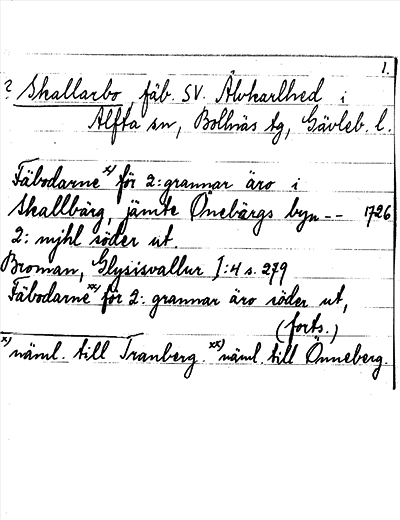 1.
? Skallarbo, fäb. SV. Älvkarlhed i
Alfta sn, Bollnäs tg, Gävleb. l.
Fäbodarne x) för 2: grannar äro i
Skallbärg, jämte Önebärgs byn -- 1726
2: mjhl söder ut.
Broman, Glysisvallur I:4 s. 279
Fäbodarne xx) för 2: grannar äro söder ut,
(forts.)
x) näml. till Tranberg. xx) näml. till Önneberg.